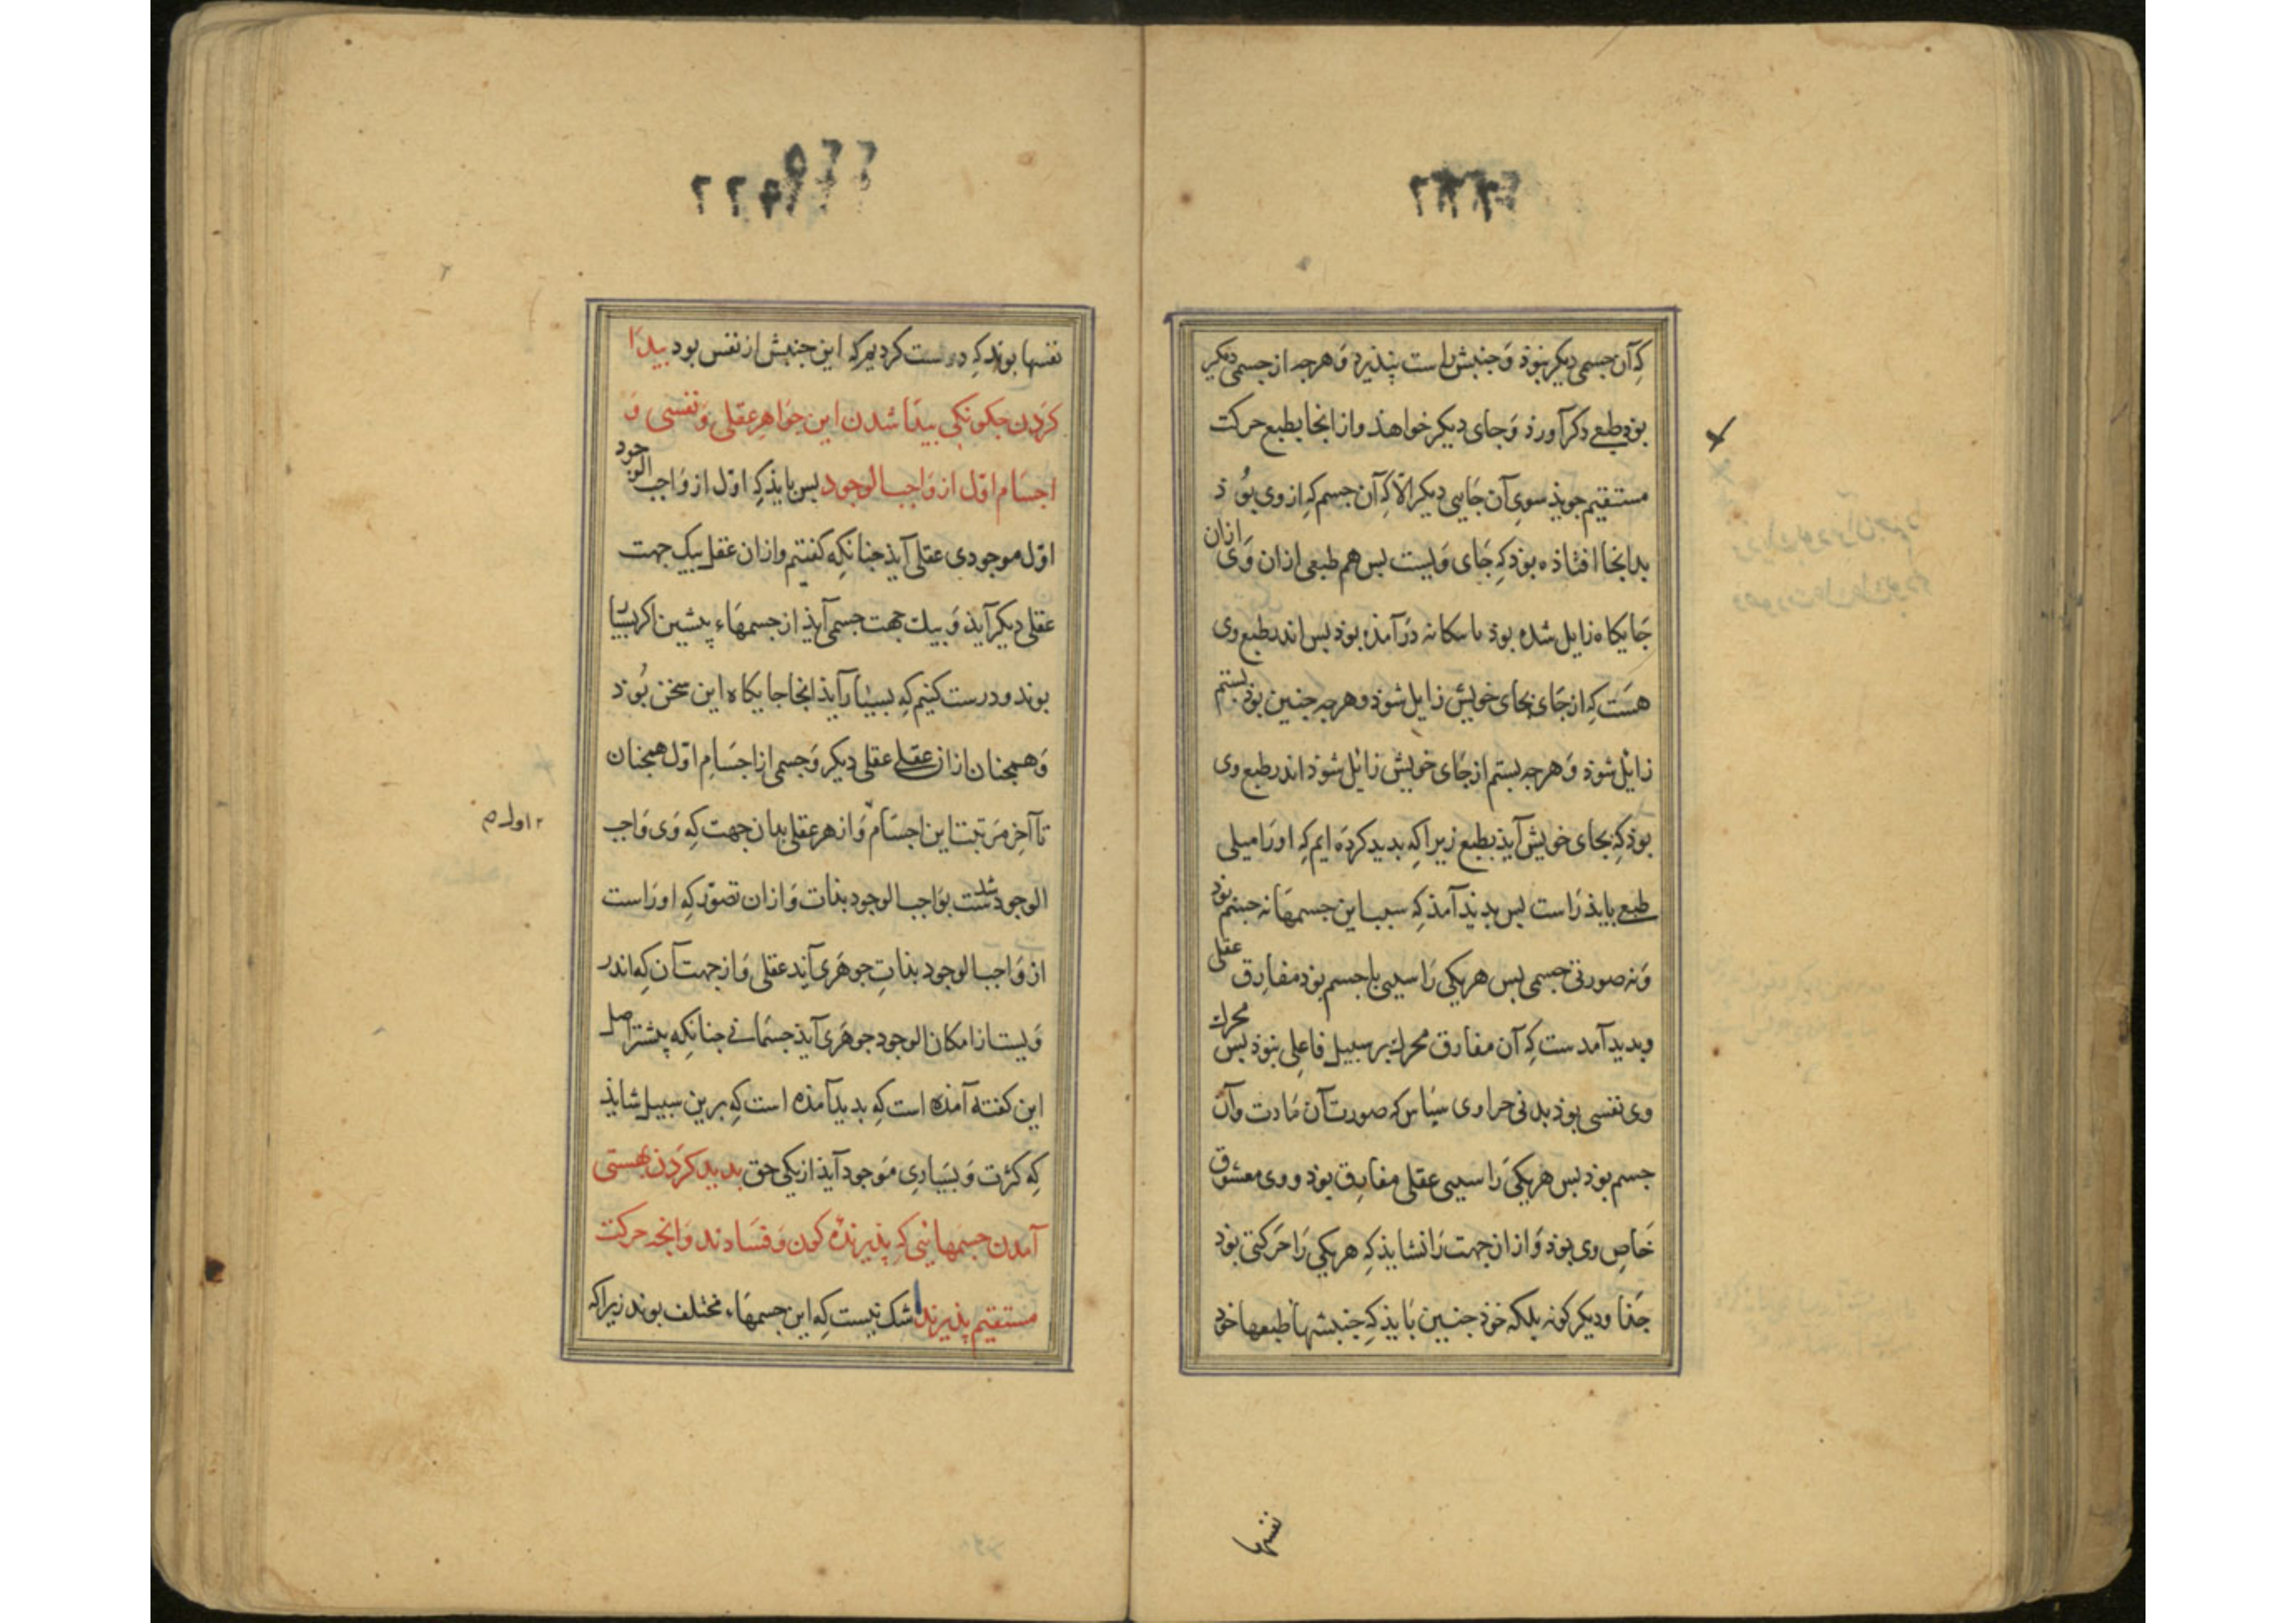 که آن جسمی دیگر بنوذ و جنبش راست پنذیرد و هرجه از جسمی دیگر
بوذ طبع دکر آورذ و جای دیکر خواهذ و از انجا بطبع حرکت
مستقیم جویذ سوی آن جایی دیکر الا که آن جسم که از وی بوذ
بدانجا افتاذه بوذ که جای ویست بس هم طبعی ازان وی ازان
جایکاه زایل شده بوذ درآمذه بوذ بس اندر طبع وی
هست که از جای بجای خویش زایل شوذ و هرجه جنین بوذ بستم
زایل شوذ و هرجه بستم از جای خویش زائل شوذ اندر طبع وی
بوذ که بجای خویش آیذ بطبع زیرا که بدید کرده ایم که او را میلی
طبع بایذ راست بس بدید آمذ که سبب این جسمها نه جسم بوذ
و نه صورتی جسمی بس هریکی را سببی با جسم بوذ مفارق عقلی
و بدید آمدست که آن مفارق محرک بر سبیل فاعلی بنوذ بس محرک
وی نفسی بوذ بدنی که صورت آن مادت و آن
جسم بوذ بس هریکی را سببی عقلی مفارق بوذ و وی معشوق
خاص وی بوذ و از ان جهت را نشایذ که هریکی را حرکتی بوذ
جذا و دیکر کونه بلکه خوذ جنین بایذ که جنبشها طبعها خوذ
نفسها
نفسها بوند که درست کردیم که این جنبش از نفس بود بیدا
کردن جکونکی بیدا شدن این جواهر عقلی و نفسی و
اجسام اول از واجب الوجود بس بایذ که اول از واجب الوجود
اول موجودی عقلی آیذ جنانکه کفتیم و ازان عقل بیک جهت
عقلی دیکر آیذ و بیک جهت جسمی آیذ از جسمهاء پیشین اکر بسیار
بوند و درست کنیم که بسیار آیذ انجا جایکاه این سخن بوذ
و همجنان از ان عقلی عقلی دیکر و جسمی از اجسام اول همجنان
تا آخر مرتبت این اجسام و از هر عقلی بدان جهت که وی واجب
اول
الوجود شدست بواجب الوجود بذات و ازان تصور که اوراست
از واجب الوجود بذات جوهری آید عقلی و از جهت آن که اندر
ویست از امکان الوجود جوهری آیذ جسمانی جنانکه پیشتر اصل
این کفته آمذه است که بدید آمذه است که برین سبیل شایذ
که کثرت و بسیاری موجود آیذ از یکی حق بدید کردن بهستی
آمدن جسمهائی که پذیرنده کون و فسادند و انجه حرکت
مستقیم پذیرند شک نیست که این جسمهاء مختلف بوند زیرا که